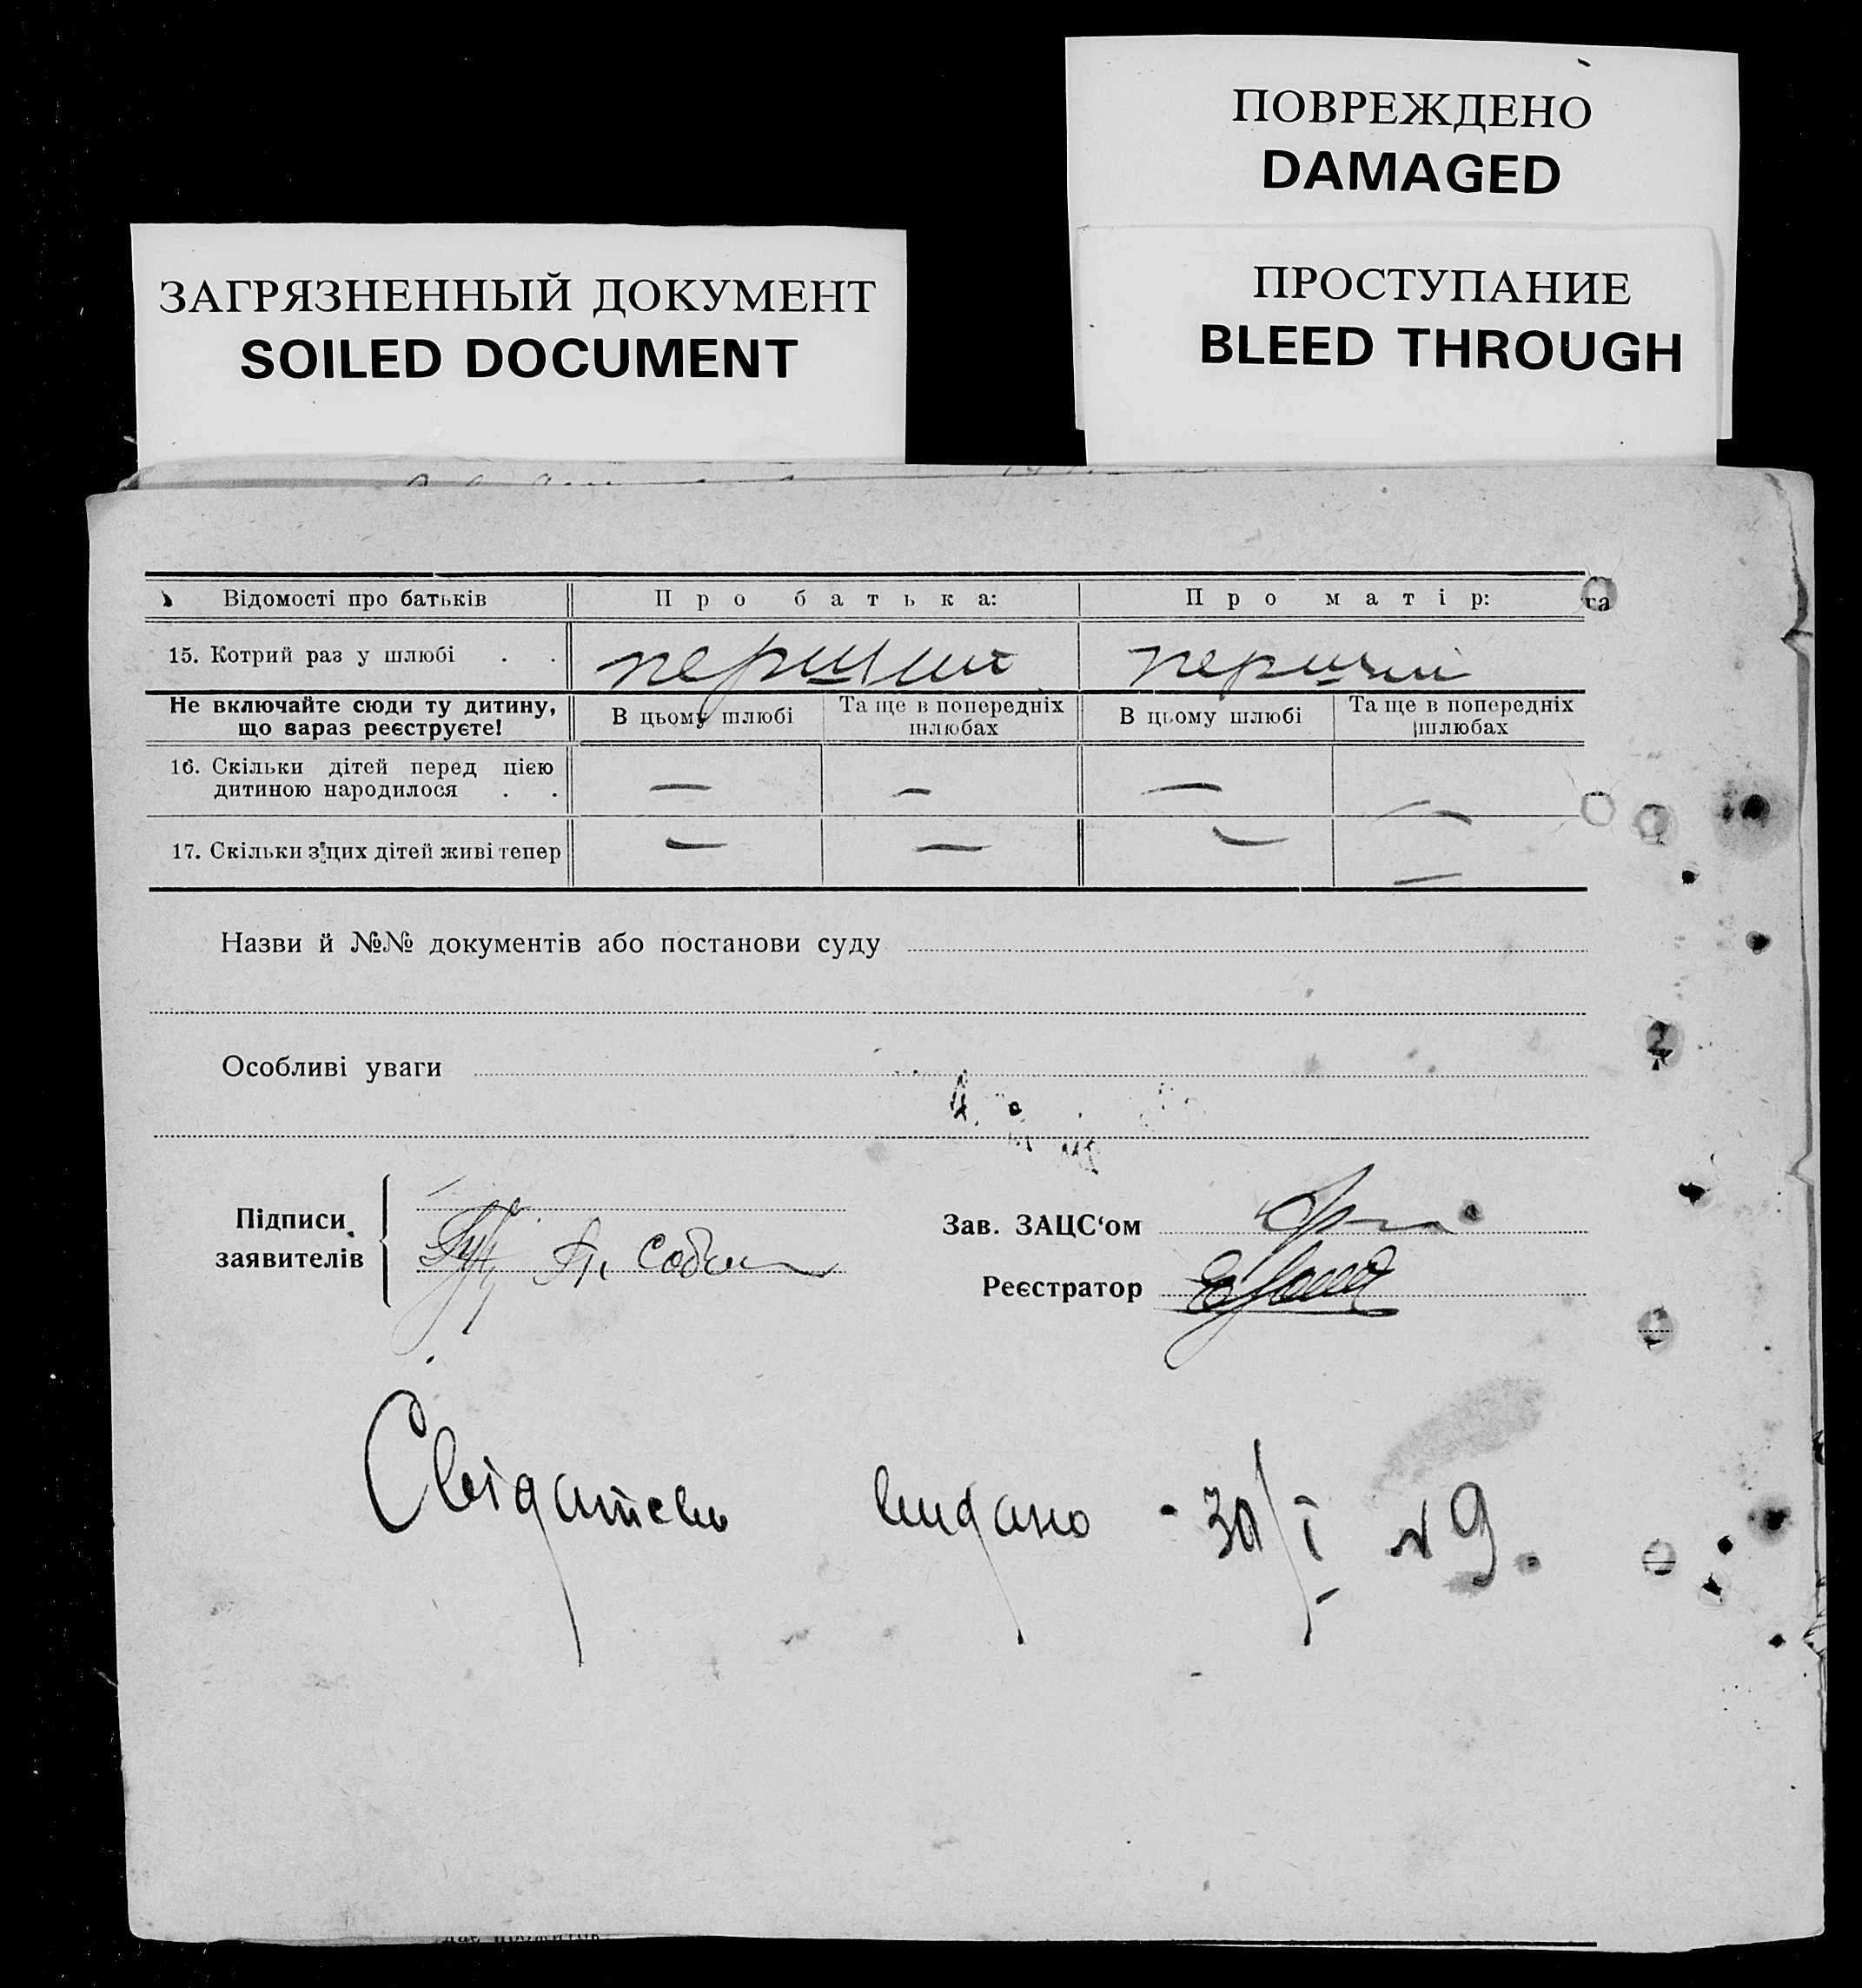 ПОВРЕЖДЕНО
DAMAGED
ЗАГРЯЗНЕННЫЙ ДОКУМЕНТ
SOILED DOCUMENT
ПРОСТУПАНИЕ
BLEED THROUGH
Відомості про батьків Про батька: Про матір:
15. Котрий раз у шлюбі . . перший перший
Не включайте сюди ту дитину,
що зараз реєструєте!
В цьому шлюбі
Та ще в попередніх
шлюбах
В цьому шлюбі
Та ще в попередніх
шлюбах
16. Скільки дітей перед цією
дитиною народилося . . — — — —
17. Скільки з цих дітей живі тепер — — — —
Назви й №№ документів або постанови суду
Особливі уваги
Підписи
заявителів
Зав. ЗАЦС‘ом
Реєстратор
Свідатство видано - 30/I N 9.